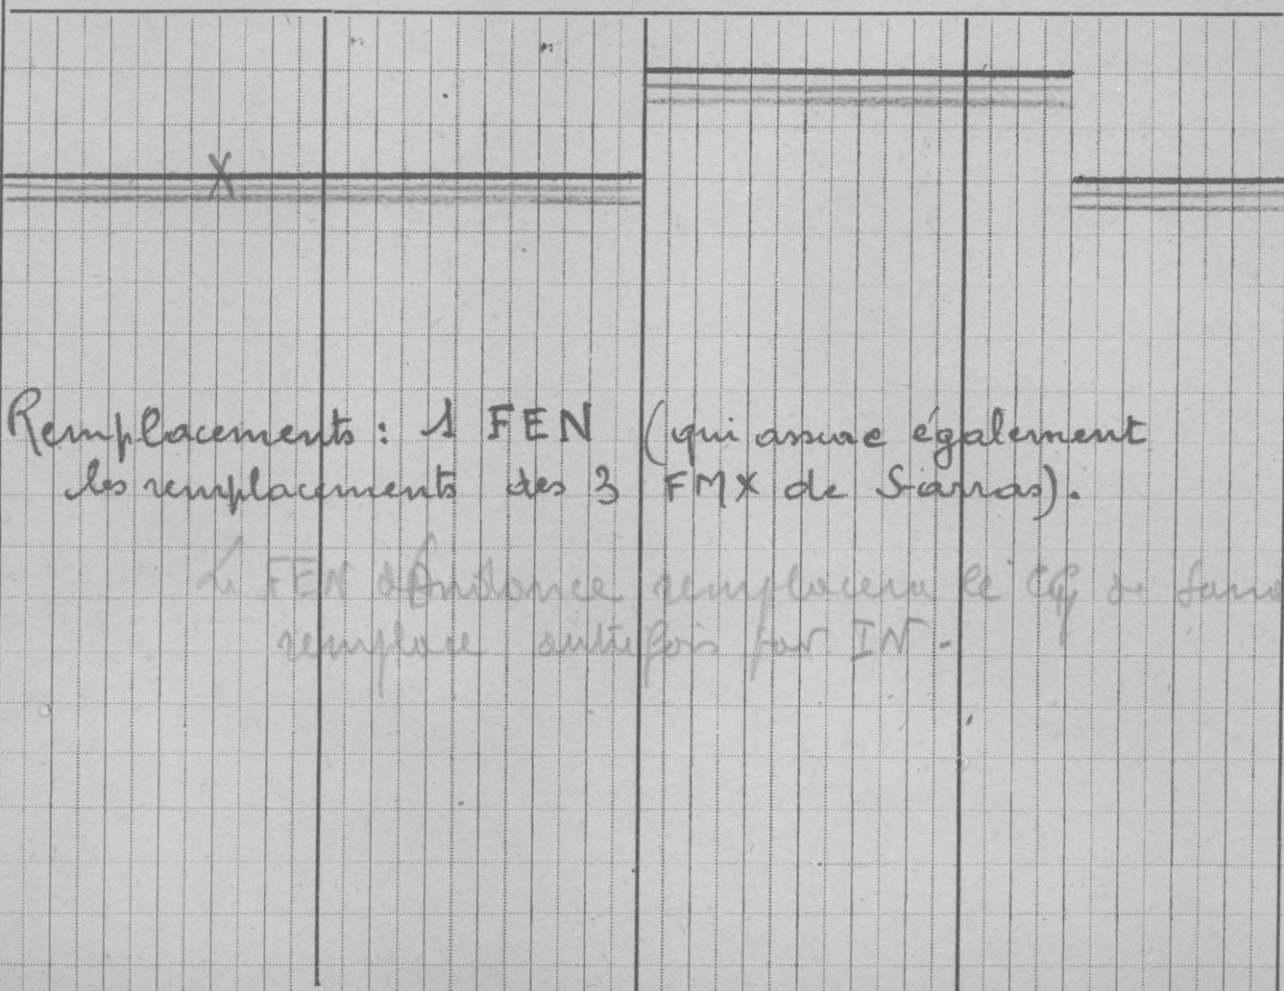 X
Remplacements : 1 FEN (qui assure également
les remplacements des 3 FMX de Sarras).
Le FEN d'Andance remplacera le CG de Sarras
remplacé autrefois par IN.